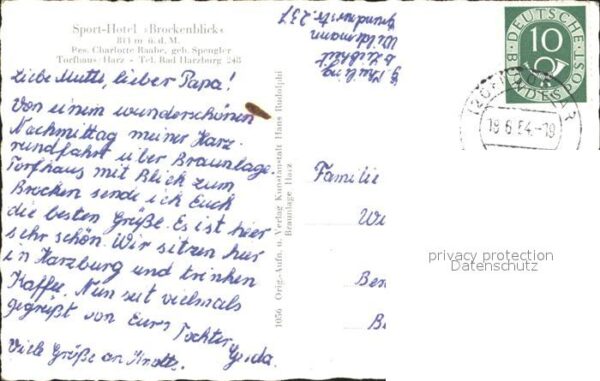 Sport-Hotel »Brockenblick«
811 m ü. d. M.
Bes. Charlotte Raabe, geb. Spengler
Torfhaus Harz - Tel. Bad Harzburg 248
Liebe Mutti, lieber Papa!
Von einem wunderschönen
Nachmittag meiner Harz-
rundfahrt über Braunlage
Torfhaus mit Blick zum
Brocken sende ich Euch
die besten Größe. Es ist hier
sehr schön. Wir sitzen hier
in Harzburg und trinken
Kaffee. Nun seit vielmals
gegrüßt von Eurer Tochter
Gerda.
Viele Größe an
1056 Orig.-Aufn. u. Verlag Kunstanstalt Hans Rudolphi
Braunlage Harz
Wildemann
237
DEUTSCHE
BUNDESPOST
10
18.6.54.-18
Familie
Wi
Ber
B
privacy protection
Datenschutz